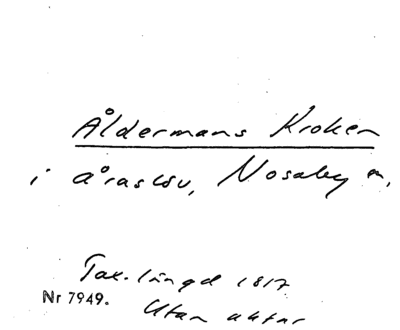 Åldermans Kroken
i åraslöv, Nosaby m.
Tax. längd 1817
Nr 7949.
Utan aktnr